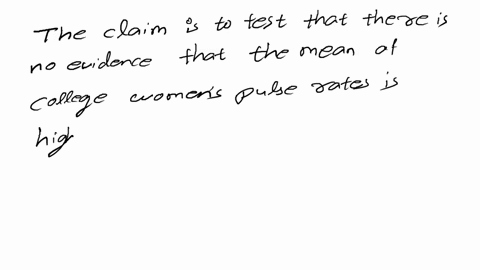 The claim is to test that there is
no evidence that the mean of
college women's pulse rates is
hig